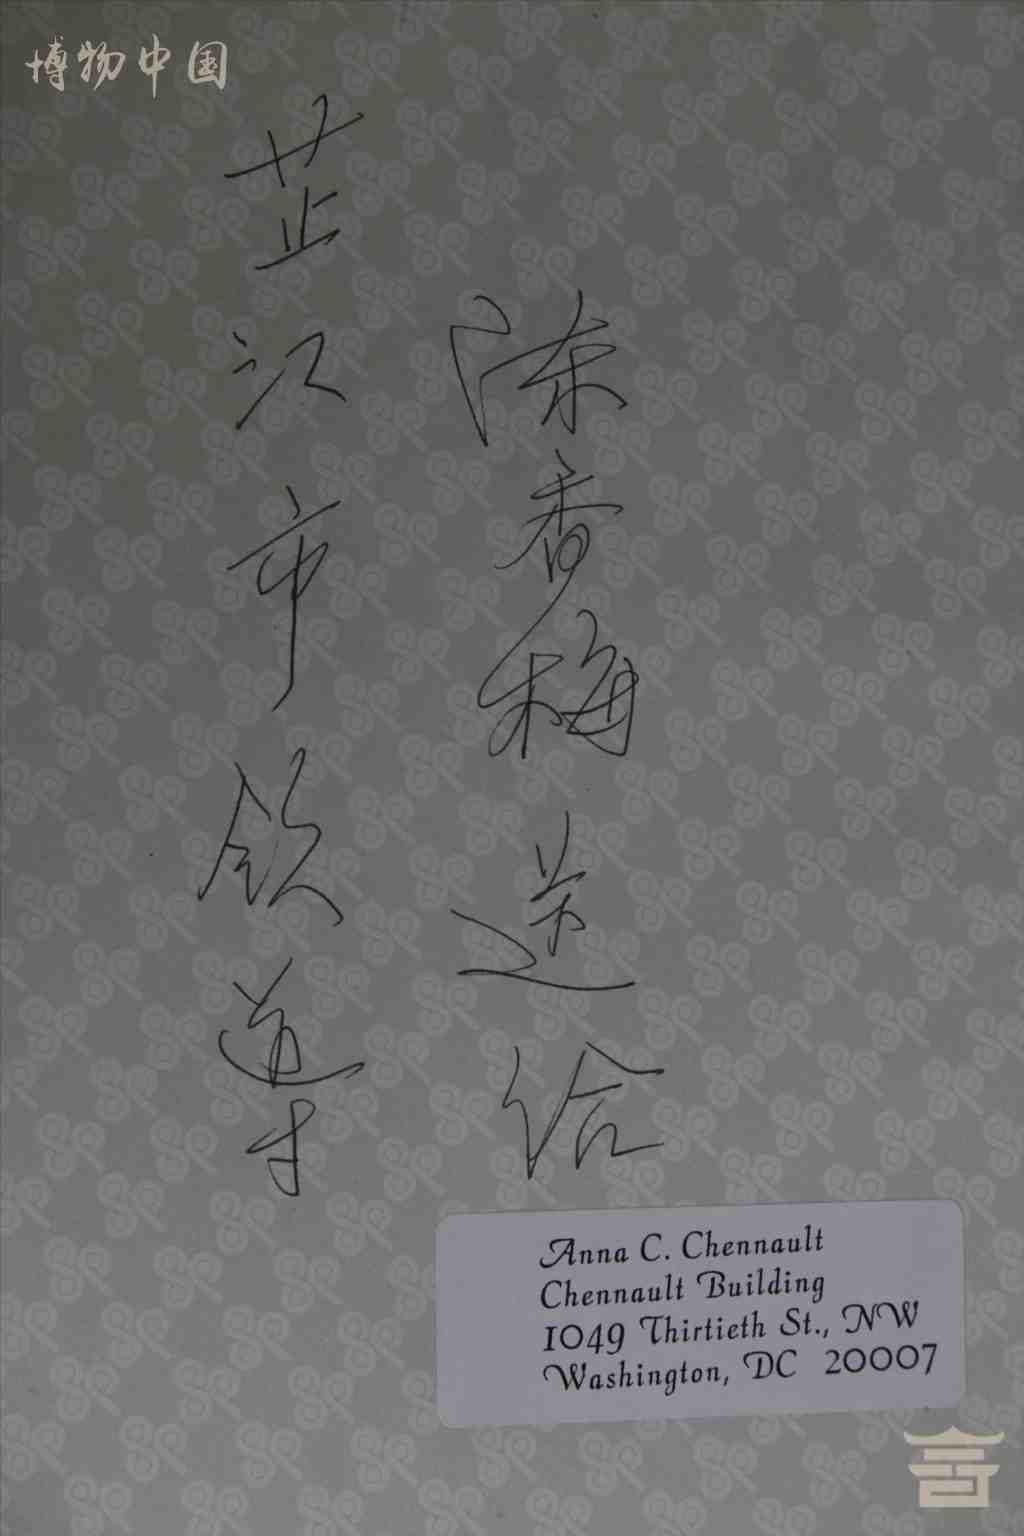 博物中国
陈香梅送给
芷江市领导
Anna C. Chennault
Chennault Building
1049 Thirtieth St., NW
Washington, DC 20007